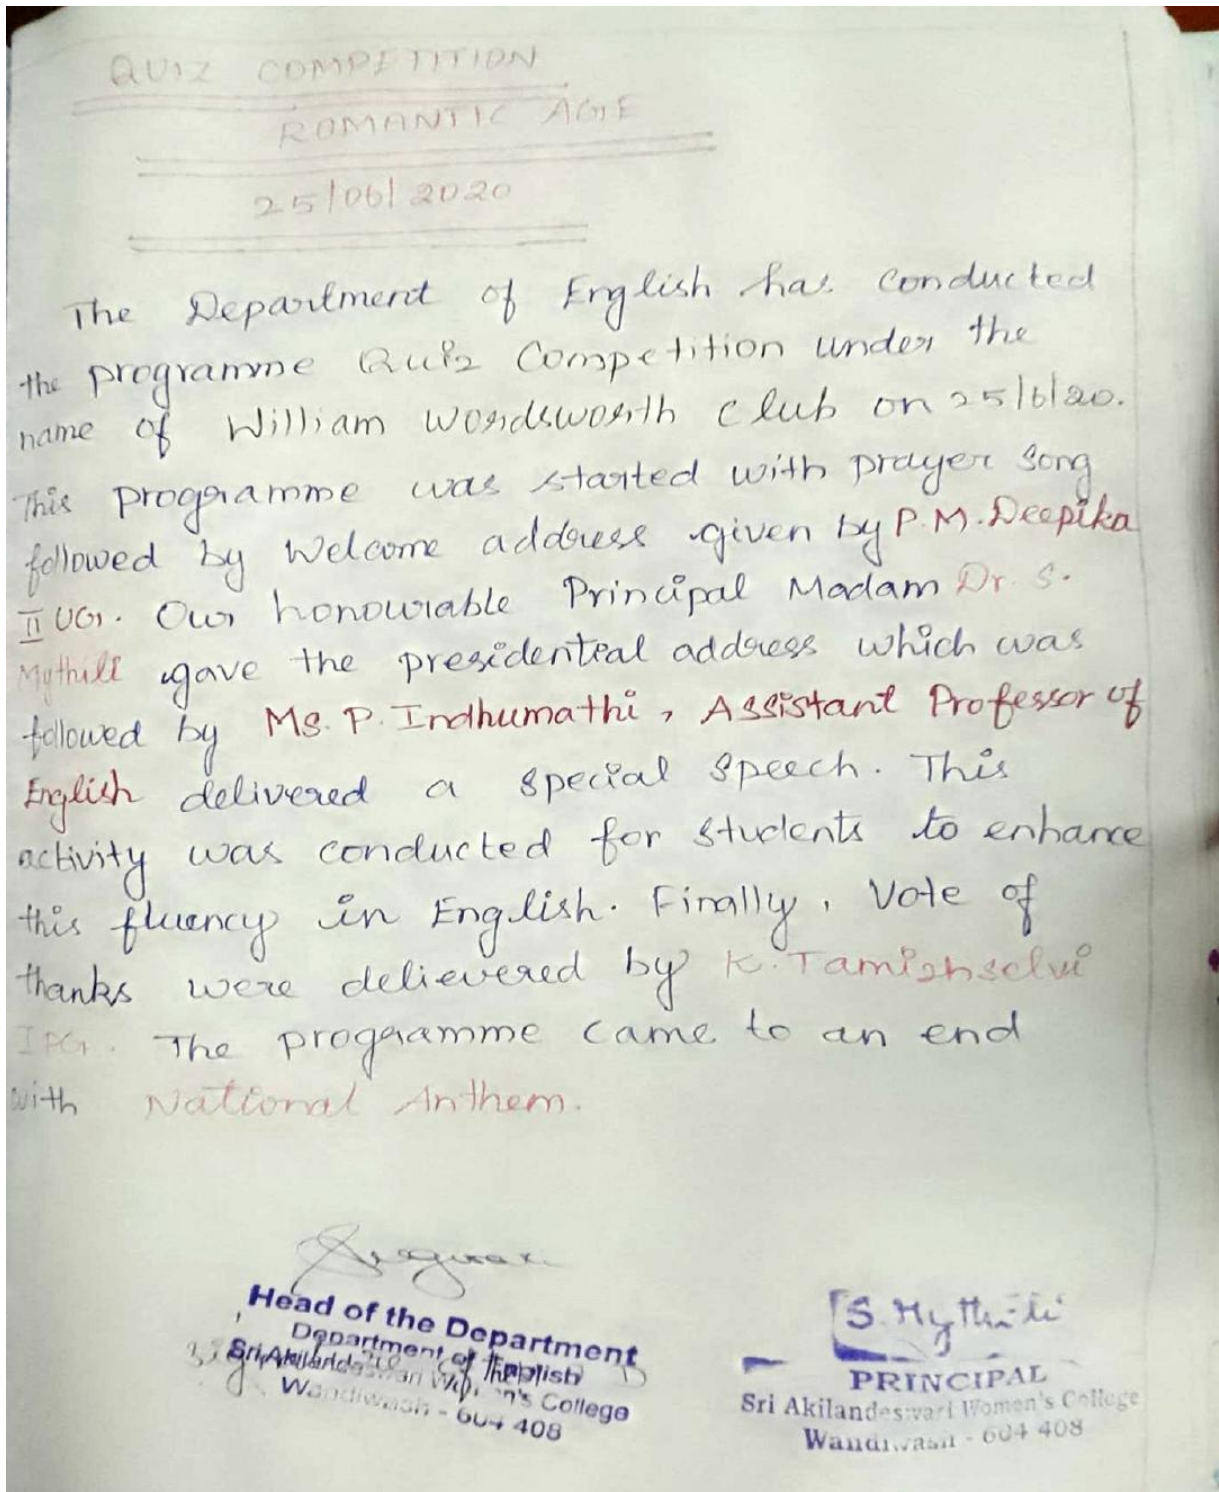 QUIZ COMPETITION
ROMANTIC AGE
25/06/2020
The Department of English has conducted
the programme Quiz Competition under the
name of William Wordsworth club on 25/6/20.
This programme was started with prayer song
followed by Welcome address given by P.M. Deepika
II UG. Our honourable Principal Madam Dr. S.
Mythili gave the presidential address which was
followed by Ms. P. Indhumathi, Assistant Professor of
English delivered a special speech. This
activity was conducted for students to enhance
this fluency in English. Finally, Vote of
thanks were delievered by K. Tamizhselvi
I PG. The programme came to an end
with National Anthem.
Head of the Department
Department of English
Sri Akilandeswari Women's College
Wandiwash - 604 408
S. Mythili
PRINCIPAL
Sri Akilandeswari Women's College
Wandiwash - 604 408